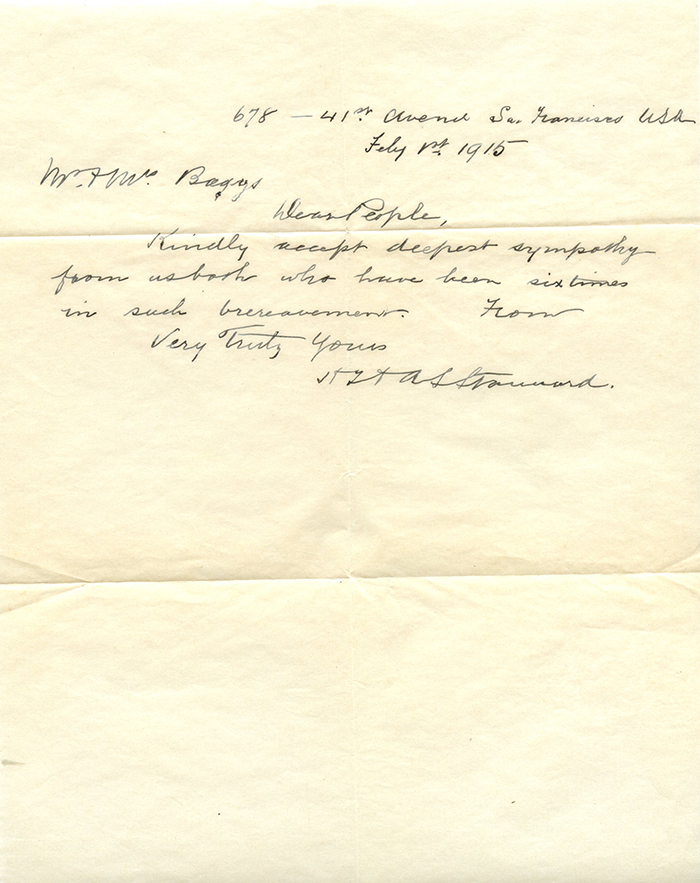 678 — 41st Avenue San Francisco USA
Feby 1st. 1915
Mr. & Mrs Baggs
Dear People,
Kindly accept deepest sympathy
from us both who have been six times
in such brereavement. From
Very Truly Yours
A L Stannard.